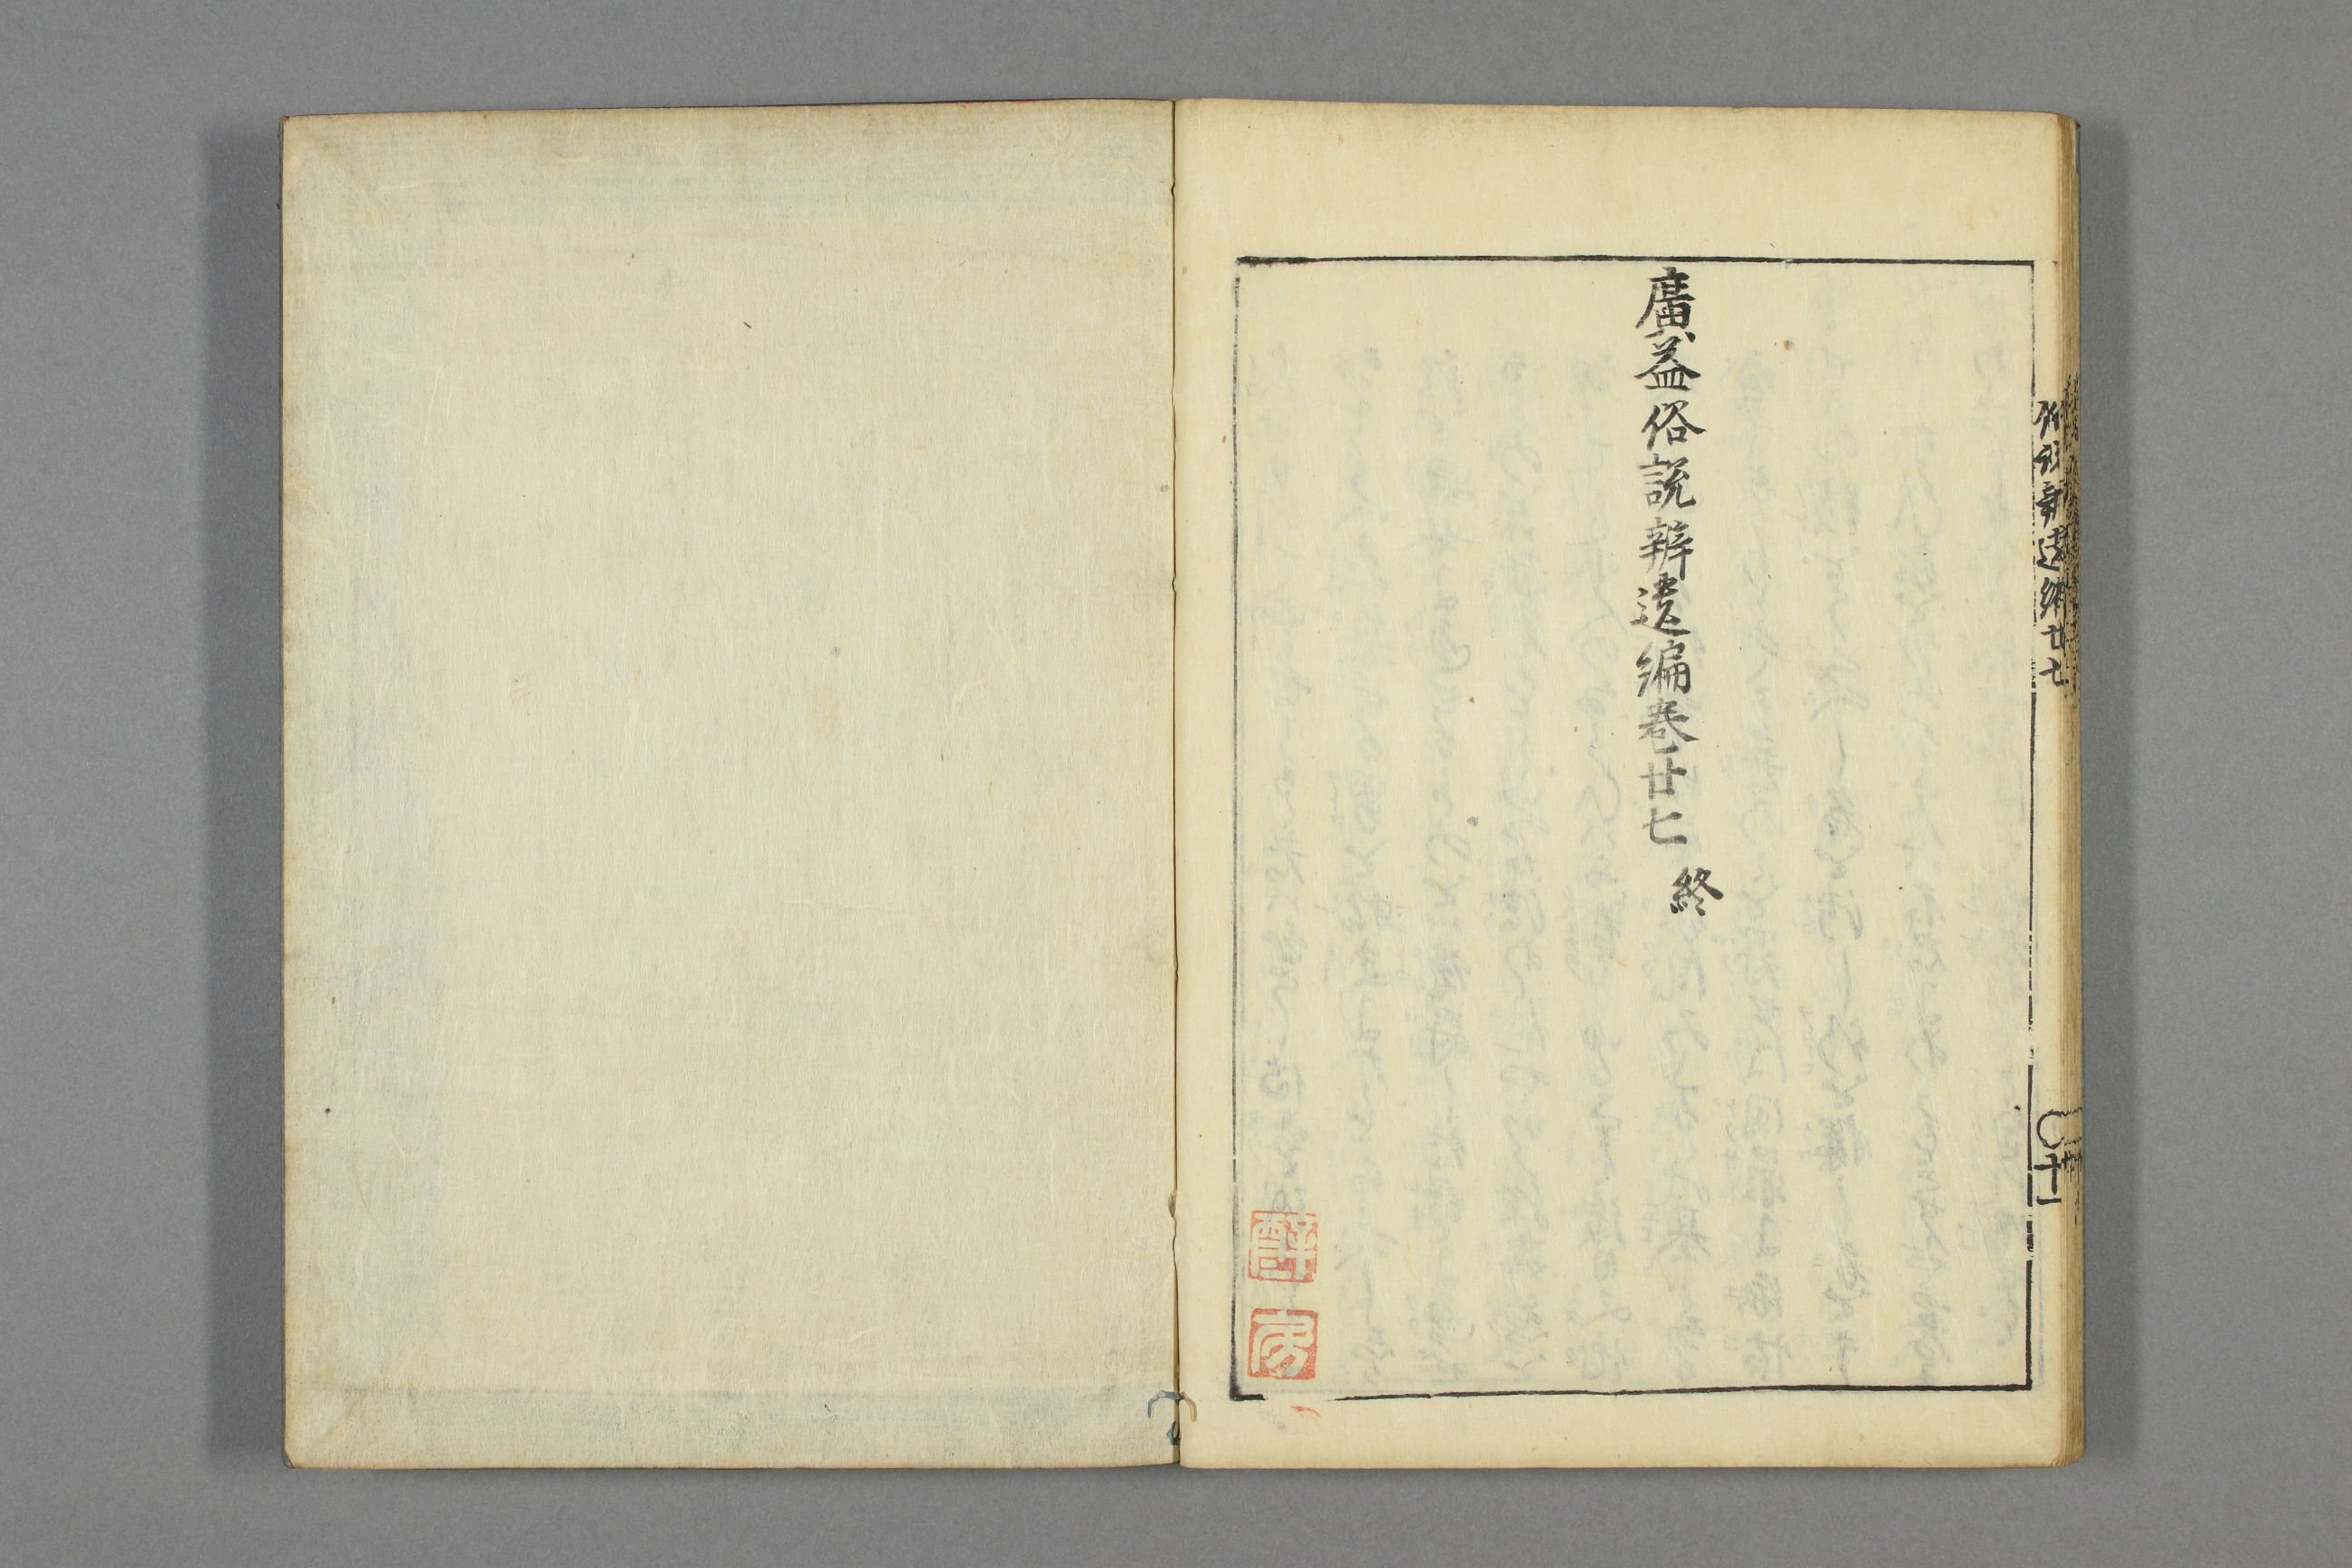 俗説辨遺編廿七
〇十一
廣益俗説辨遺編卷廿七 終